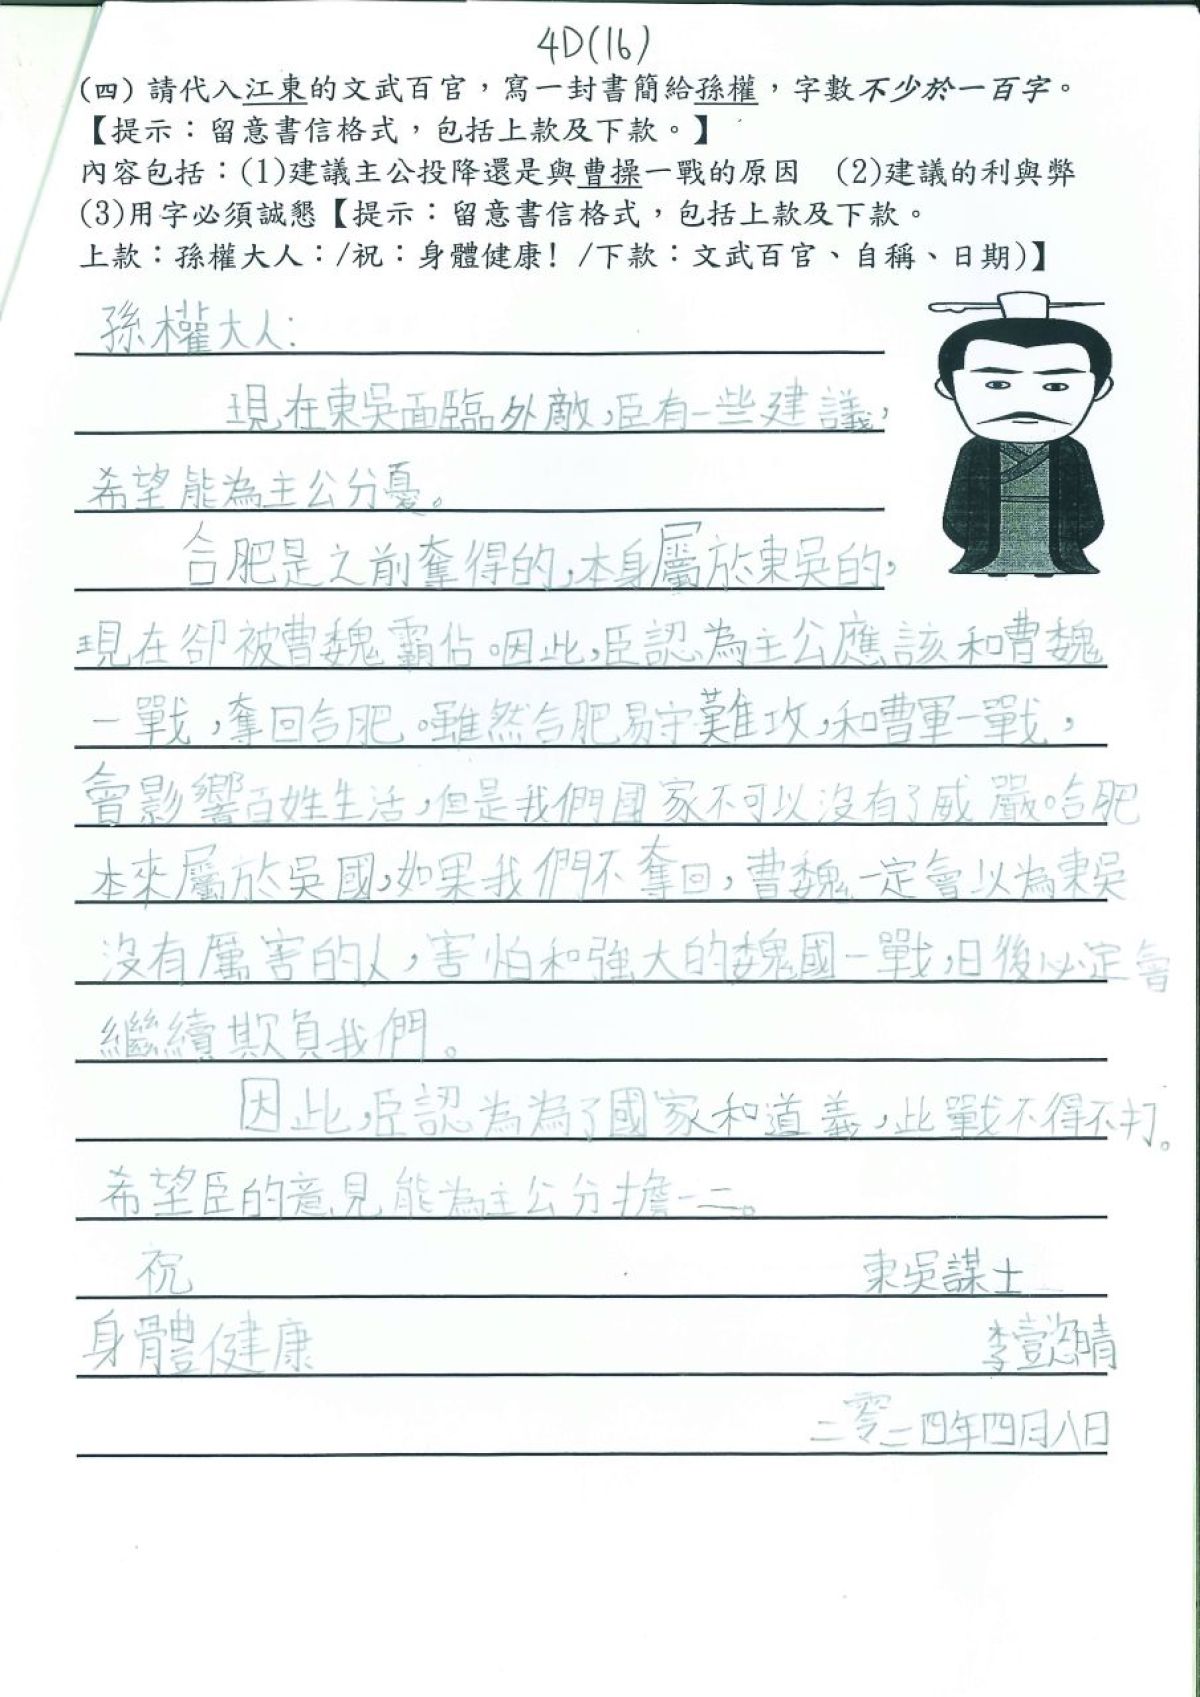 4D(16)
(四) 請代入江東的文武百官，寫一封書簡給孫權，字數不少於一百字。
【提示：留意書信格式，包括上款及下款。】
內容包括：(1)建議主公投降還是與曹操一戰的原因 (2)建議的利與弊
(3)用字必須誠懇【提示：留意書信格式，包括上款及下款。
上款：孫權大人：/祝：身體健康! /下款：文武百官、自稱、日期)】
孫權大人：
現在東吳面臨外敵，臣有一些建議，
希望能為主公分憂。
合肥是之前奪得的，本身屬於東吳的，
現在卻被曹魏霸佔。因此，臣認為主公應該和曹魏
一戰，奪回合肥。雖然合肥易守難攻，和曹軍一戰，
會影響百姓生活，但是我們國家不可以沒有了威嚴。合肥
本來屬於吳國，如果我們不奪回，曹魏一定會以為東吳
沒有厲害的人，害怕和強大的魏國一戰，日後必定會
繼續欺負我們。
因此，臣認為為了國家和道義，此戰不得不打。
希望臣的意見能為主公分擔一二。
祝
東吳謀士
身體健康
李懿晴
二零二四年四月八日